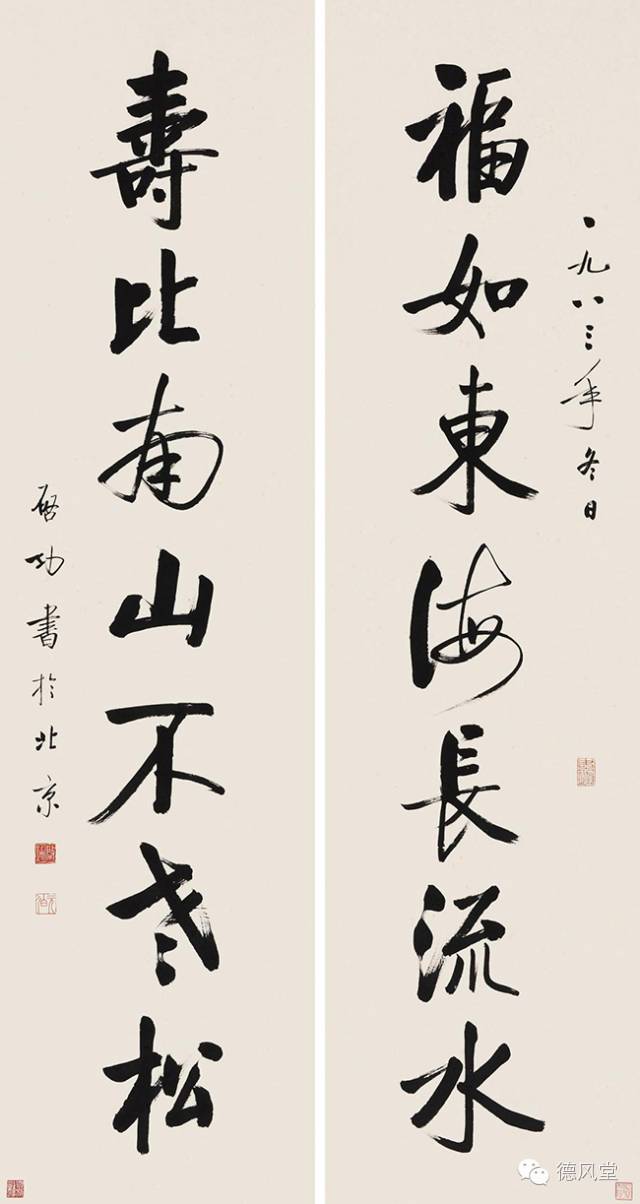 一九八三年冬日
福如東海長流水
壽比南山不老松
啟功書於北京
德风堂